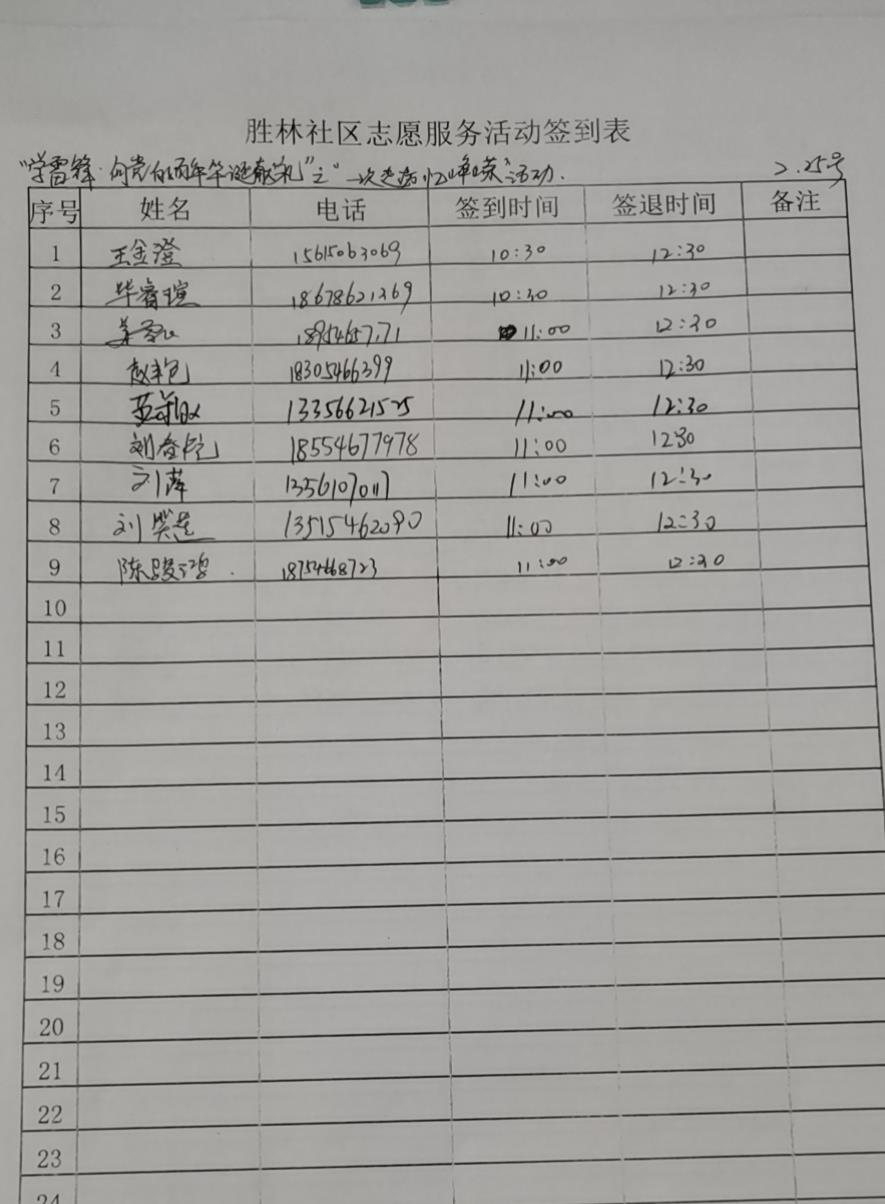 胜林社区志愿服务活动签到表
"学雷锋·向党的百年华诞献礼"之" 峥嵘"活动. 2.25号
序号 姓名 电话 签到时间 签退时间 备注
1 王金澄 15615063069 10:30 12:30
2 毕睿瑄 18678621269 10:30 12:30
3 11:00 12:30
4 18305466399 11:00 12:30
5 13356621525 11:00 12:30
6 18554677978 11:00 12:30
7 刘萍 13561070117 11:00 12:30
8 刘 13515462090 11:00 12:30
9 陈骏鸿 18754668723 11:00 12:30
10
11
12
13
14
15
16
17
18
19
20
21
22
23
24